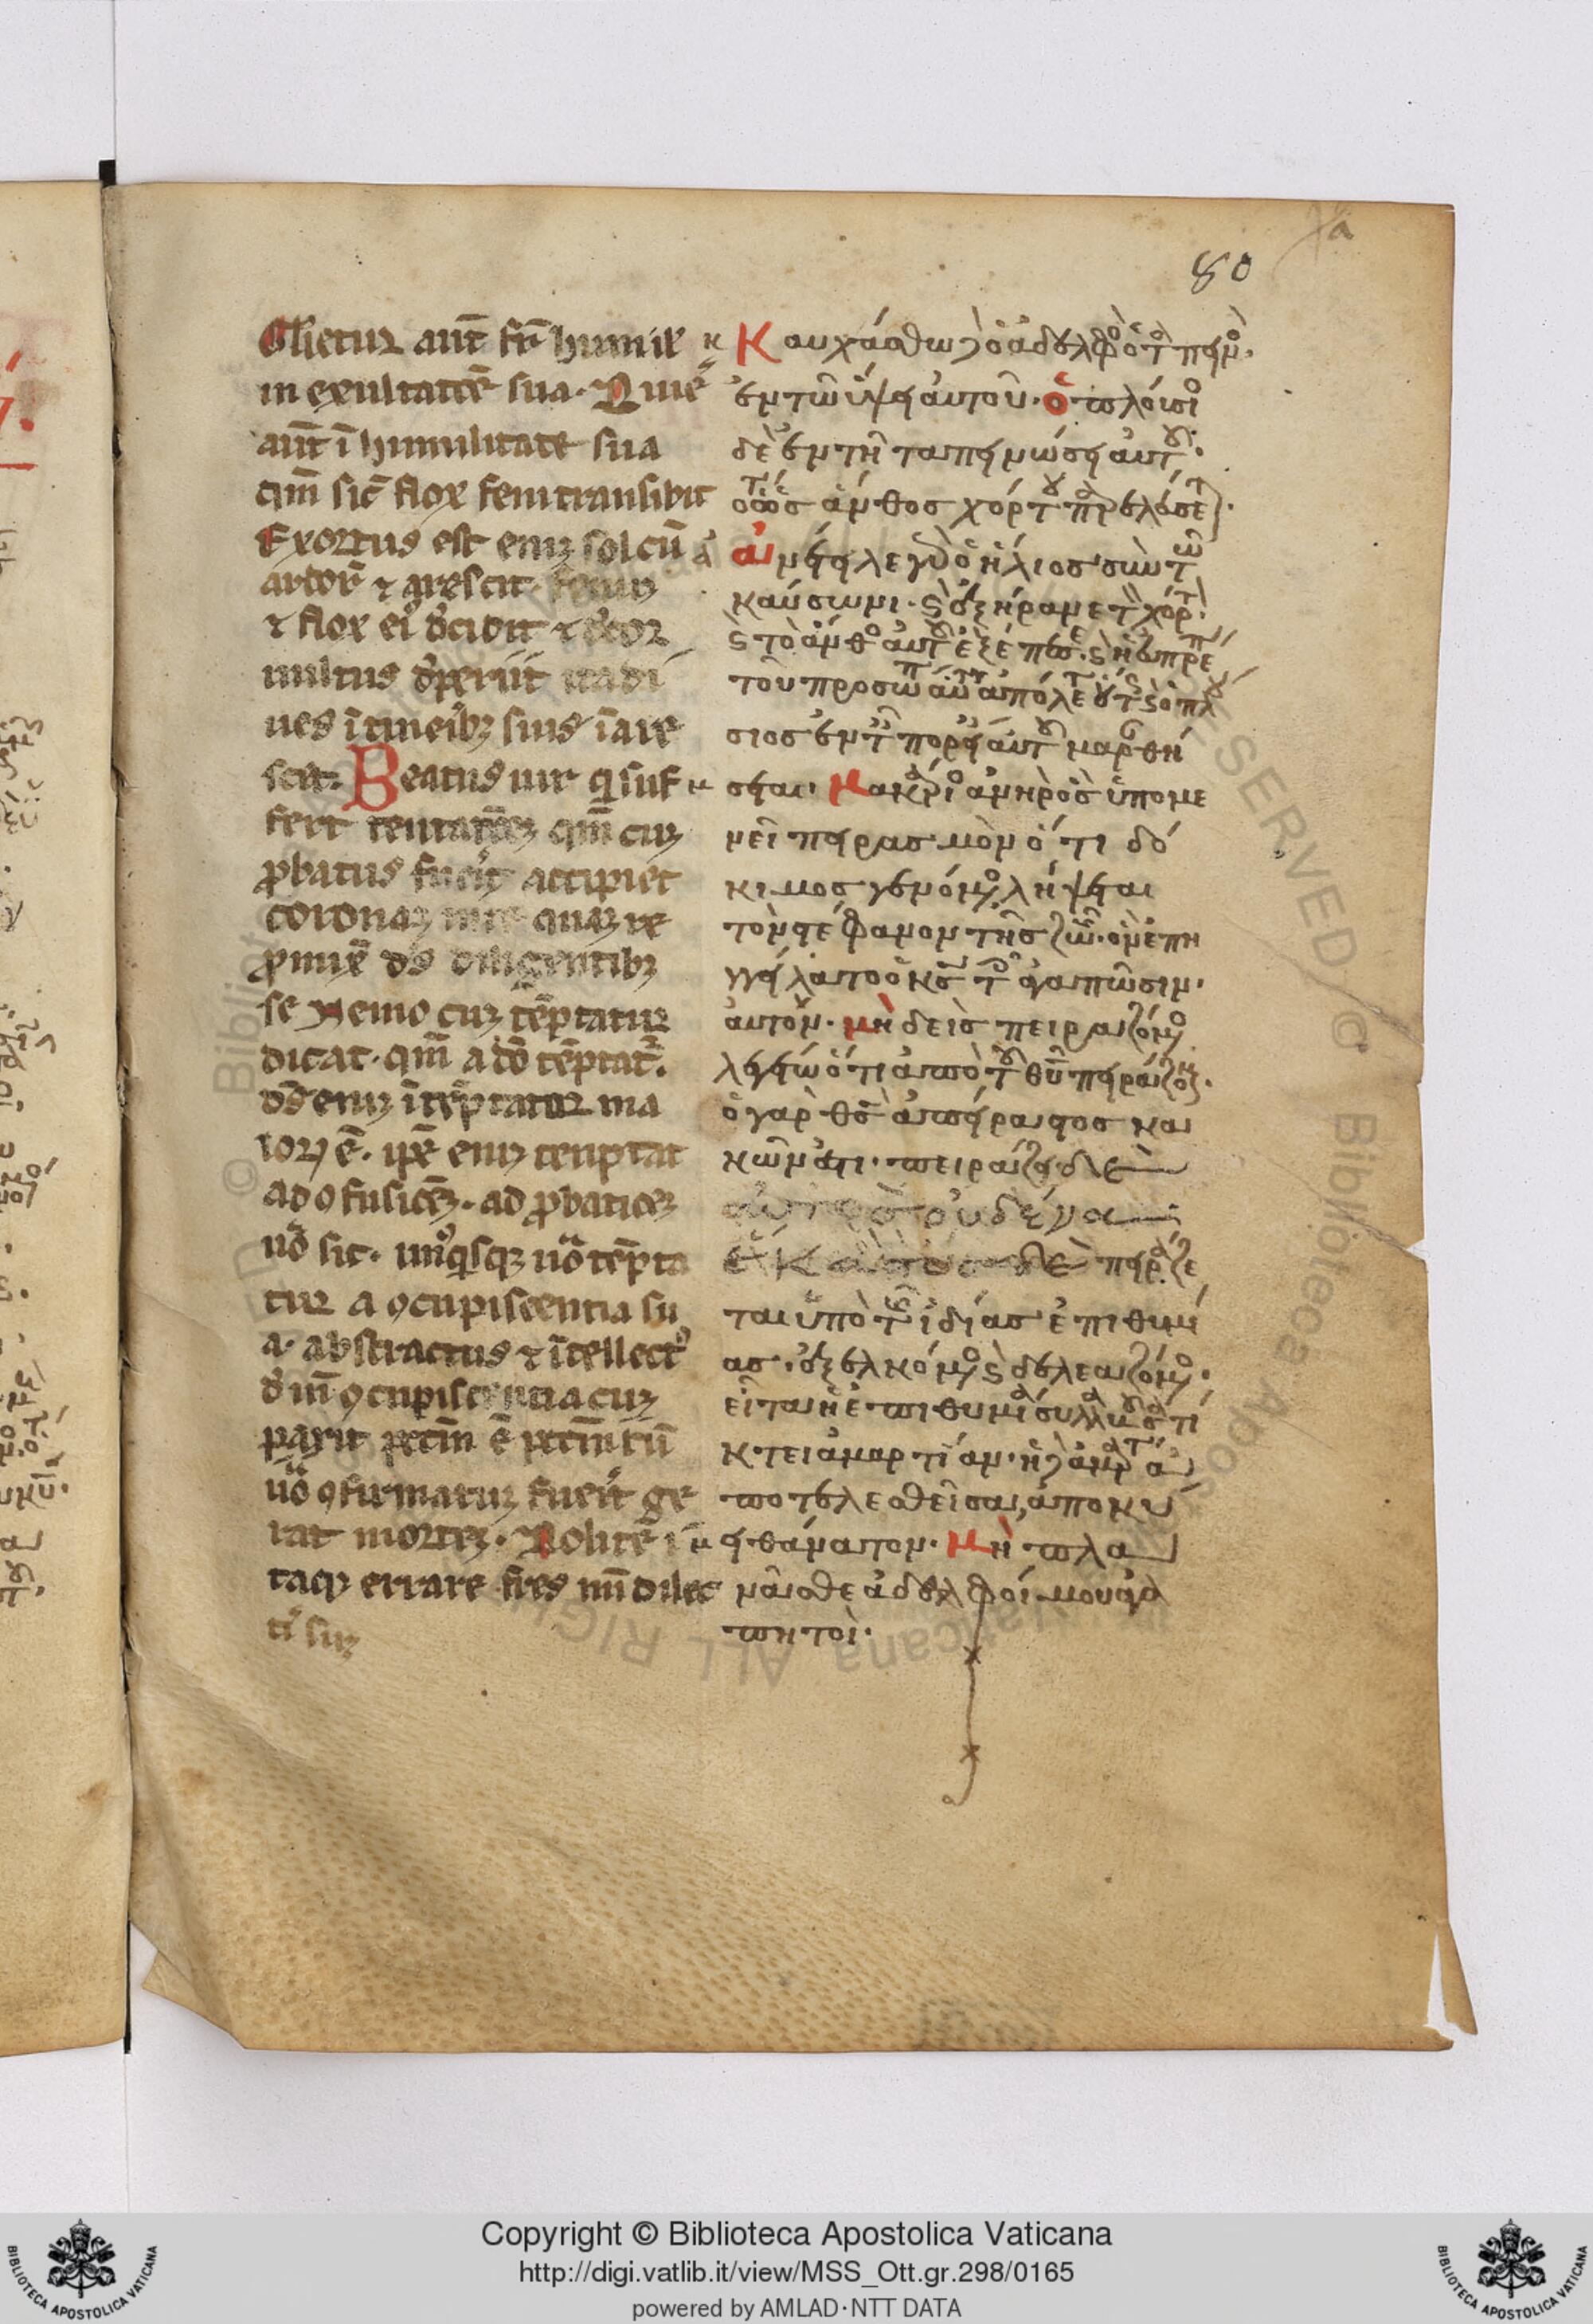 80
Glietur aut fr humil
in exultatione sua. Diues
aut i humilitate sua
qm sic flox feni transibit
Exortus est enim sol cu
ardore et arescit fenum
et flox ei decidit et decor
uultus deperiit ita di
ues i itineribus suis i are
scit. Beatus uir qi suf
fert tentatione qm cum
probatus fuerit accipiet
coronam uite quam re
promixit ds diligentibus
se Nemo cum temptatur
dicat. qm a deo temptatur.
ds enim itemptator ma
lorum e. ipse enim temptat
ad
uo sic. unusqisque uo tempta
tur a concupiscentia su
a. abstractus et i
dein concupiscentia cum
parit pctm e pctm
uo
rat mortem. Nolite i
taque errare fres mi dilec
ti
Καυχάσθω δὲ ὁ ἀδελφὸς ὁ ταπεινὸς
ἐν τῶ ὕψει αὐτοῦ. ὁ πλούσιος
δὲ ἐν τῆ ταπεινώσει αὐτοῦ.
ὅτι ὡς ἄνθος χόρτου παρελεύσεται.
ἀνέτειλε γὰρ ὁ ἥλιος σὺν τῶ
καύσωνι. καὶ ἐξήρανε τὸν χόρτον
καὶ τὸ ἄνθος αὐτοῦ ἐξέπεσε. καὶ ἡ εὐπρέπεια
τοῦ προσώπου αὐτοῦ ἀπόλετο οὕτως καὶ ὁ πλού
σιος ἐν ταῖς πορείαις αὐτοῦ μαρανθή
σεται. Μακάριος ἀνὴρ ὃς ὑπομε
νεῖ πειρασμὸν ὅτι δό
κιμος γενόμενος λήψεται
τὸν στέφανον τῆς ζωῆς. ὃν ἐπη
γγείλατο ὁ κς τοῖς ἀγαπῶσιν.
αὐτόν. μηδεὶς πειραζόμενος
λεγέτω ὅτι ἀπὸ τοῦ θυ πειράζομαι.
ὁ γὰρ θς ἀπείραστος κα
κῶν ἐστι. πειράζει δὲ
αὐτὸς οὐδένα
ἕκαστος δὲ πειράζε
ται ὑπὸ τῆς ἰδίας ἐπιθυμί
ας. ἐξελκόμενος καὶ δελεαζόμενος.
εἶτα ἡ ἐπιθυμία συλλαβοῦσα τί
κτει ἁμαρτίαν. ἡ δὲ ἁμαρτία ἀ
ποτελεσθεῖσα, ἀποκύ
ει θάνατον. Μὴ πλα
νᾶσθε ἀδελφοί μου ἀγα
πητοί.
Copyright © Biblioteca Apostolica Vaticana
http://digi.vatlib.it/view/MSS_Ott.gr.298/0165
powered by AMLAD·NTT DATA